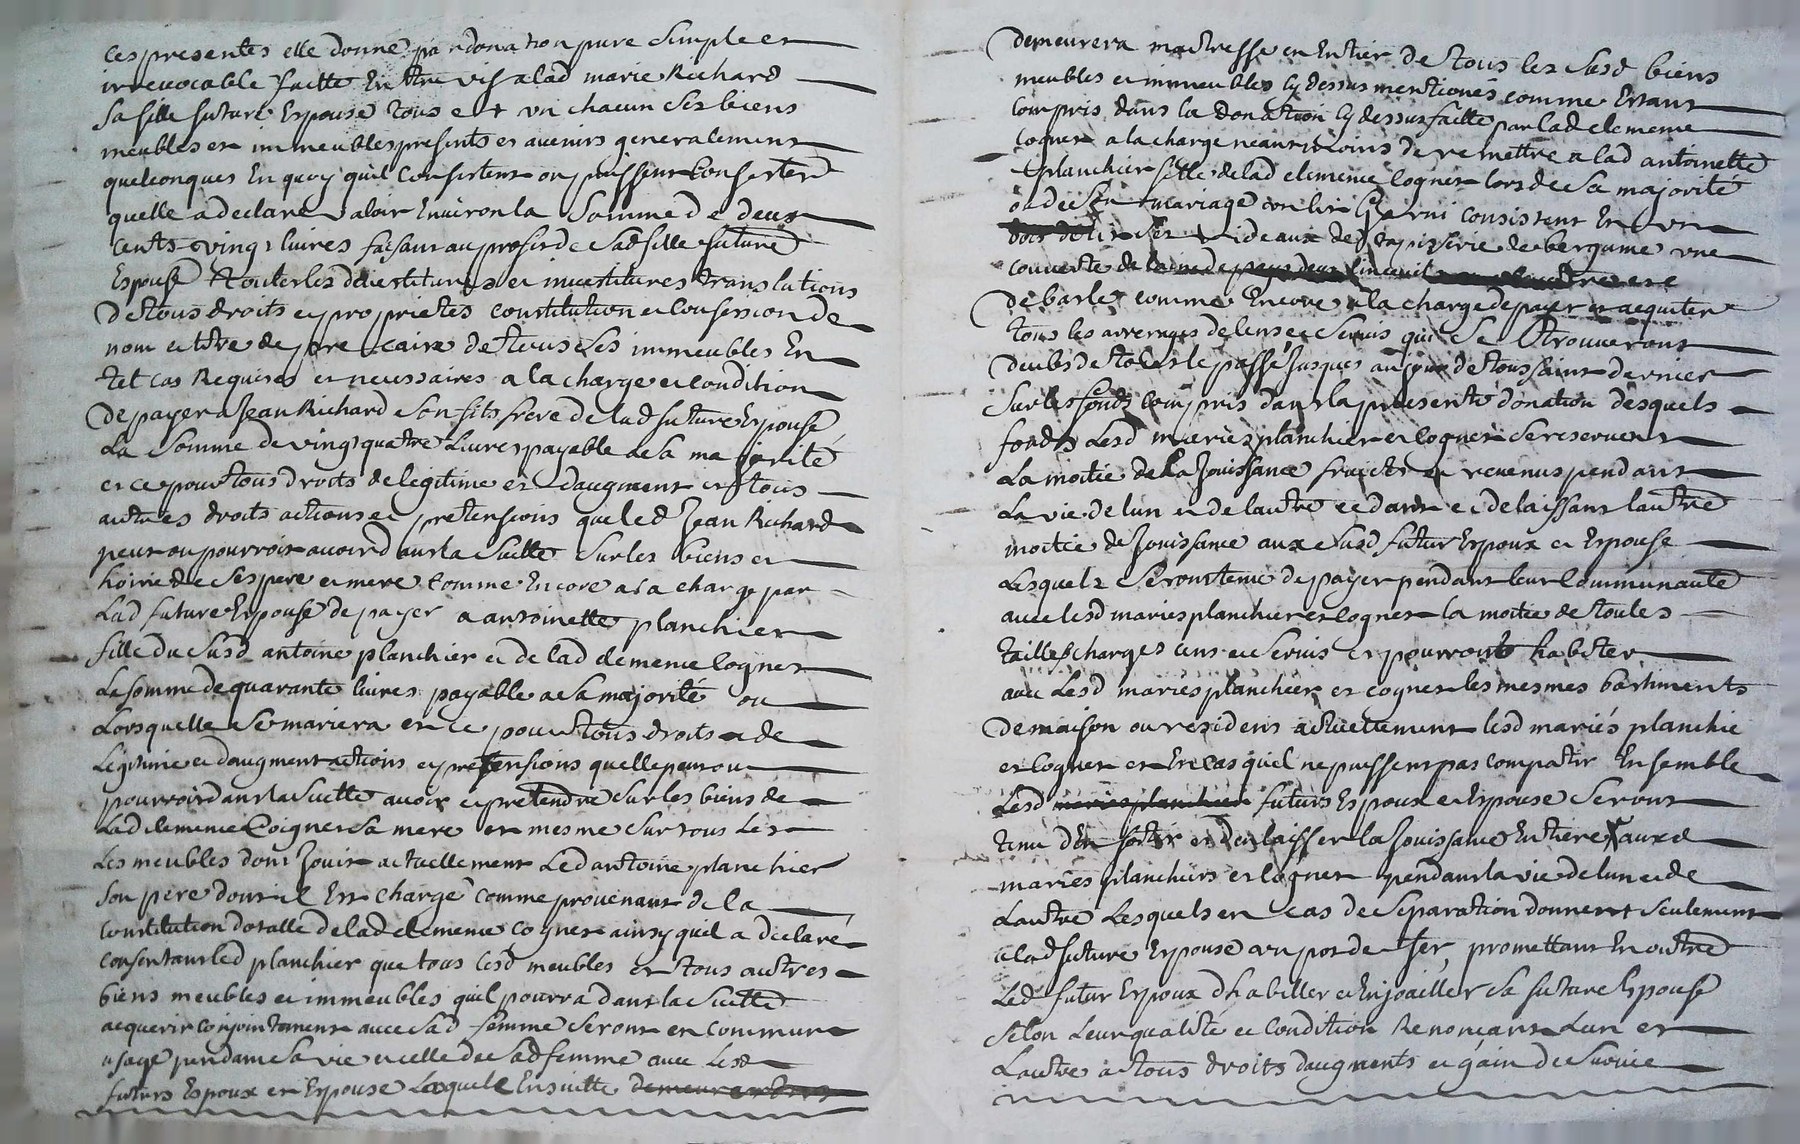 ces presentes elle donne par donation pure simple et
irrevocable faitte Entre vif a lad marie Richard
sa fille future Espouse tous et un chacun ses biens
meubles et immeubles presents et avenirs generalement
quelconques En quoy quil consistent ou puissent consister
quelle a declaré valoir Environ la somme de deux
cents vingt livres faisant au profit de sad fille future
Espouse toutes les devestitures et investitures translations
De tous droits et proprietes constitution et confession de
nom et titre de precaire de tous les immeubles En
tel cas Requises et necessaires a la charge et condition
De payer a Jean Richard son fils frere de lad future Espouse
La somme de vingt quatre Livres payable a sa majorité
et ce pour tous droits de legitime et daugment et tous
autres droits actions et pretensions que led Jean Richard
peut ou pourroit avoir dans la suitte sur les biens et
hoirie de ses pere et mere comme Encore a la charge par
Lad future Espouse de payer a antoinette planchier
fille du susd antoine planchier et de lad clemence Cognet
La somme de quarante livres payable a sa majorité ou
Lorsquelle se mariera et ce pour tous droits de
Legitime et daugment actions et pretensions quelle peut ou
pourroit dans la suitte avoir et pretendre sur les biens de
Lad clemence Coignet sa mere et mesme sur tous les
Les meubles dont Jouit actuellement Led antoine planchier
son pere dont il Est chargé comme provenant de la
constitution dotalle de lad clemence Cognet ainsy quil a declaré
consentant led planchier que tous lesd meubles et tous autres
biens meubles et immeubles quil pourra dans la suitte
acquerir conjointement avec sad femme seront en commun
usage pendant sa vie et celle de sad femme avec lesd
futurs Espoux et Espouse Laquelle Ensuitte
demeurera maitresse en Entier de tous les susd biens
meubles et immeubles cy dessus mentionés comme Estant
compris dans la Donation cy dessus faitte par lad clemence
Cognet a la charge neantmoins de remettre a lad antoinette
planchier fille de lad clemence Cognet lors de sa majorité
ou de son mariage un lit Garni consistent En un
rideaux de tapisserie de bergame une
couverte de
De barle comme Encore a la charge de payer et acquiter
tous les arrerages de cens et servis qui se trouveront
Deubs de tout le passé Jusques au Jour de toussaint dernier
Sur les fonds compris dans la presente donation desquels
fonds Lesd mariez planchier et Cognet se reservent
La moitié de La Jouissance fruicts et revenus pendant
La vie de lun et de lautre cedant et delaissant lautre
moitié de Jouissance aux susd futur Espoux et Espouse
Lesquels seront tenu de payer pendant leur communauté
avec lesd mariés planchier et Cognet la moitié de toutes
tailles charges cens et servis et pourront habiter
avec Lesd mariés planchier et Cognet les mesmes bastiments
De maison ou resident actuellement lesd mariés planchie
et Cognet et En cas quil ne puissent pas compatir Ensemble
Lesd mariés planchier futurs Espoux et Espouse seront
tenu dEn sortir et den laisser la Jouissance Entiere auxd
mariés planchiers et Cognet pendant la vie de lun et de
Lautre Lesquels en cas de separation donneront seulement
a lad future Espouse un pot de fer, promettant En outre
Led futur Espoux dhabiller et Enjoailler sa future Espouse
Selon Leur qualité et condition Renonçant Lun et
Lautre a tous droits daugments et gain de survie